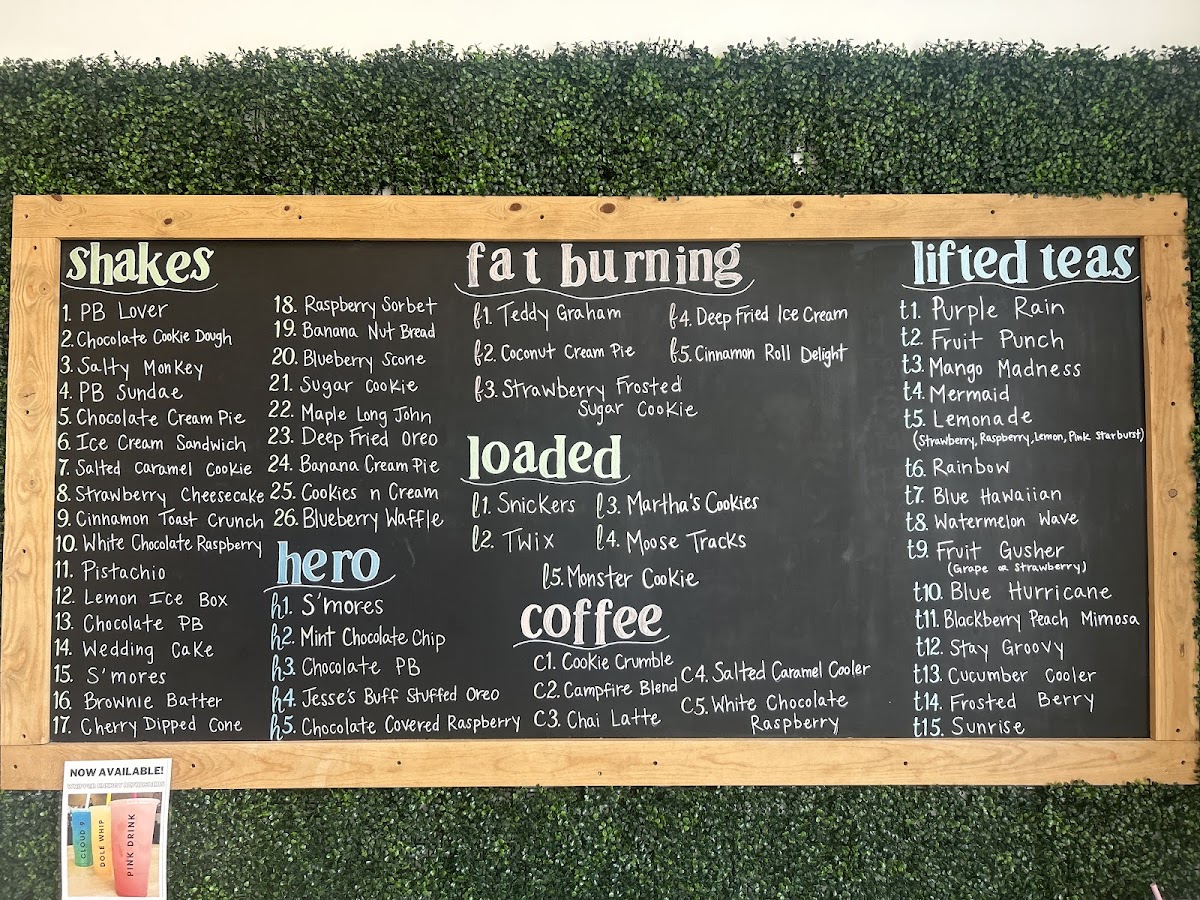 shakes
1. PB Lover
2. Chocolate Cookie Dough
3. Salty Monkey
4. PB Sundae
5. Chocolate Cream Pie
6. Ice Cream Sandwich
7. Salted Caramel Cookie
8. Strawberry Cheesecake
9. Cinnamon Toast Crunch
10. White Chocolate Raspberry
11. Pistachio
12. Lemon Ice Box
13. Chocolate PB
14. Wedding Cake
15. S'mores
16. Brownie Batter
17. Cherry Dipped Cone
18. Raspberry Sorbet
19. Banana Nut Bread
20. Blueberry Scone
21. Sugar Cookie
22. Maple Long John
23. Deep Fried Oreo
24. Banana Cream Pie
25. Cookies n Cream
26. Blueberry Waffle
hero
h1. S'mores
h2. Mint Chocolate Chip
h3. Chocolate PB
h4. Jesse's Buff Stuffed Oreo
h5. Chocolate Covered Raspberry
fat burning
f1. Teddy Graham
f2. Coconut Cream Pie
f3. Strawberry Frosted
Sugar Cookie
f4. Deep Fried Ice Cream
f5. Cinnamon Roll Delight
loaded
l1. Snickers
l2. Twix
l3. Martha's Cookies
l4. Moose Tracks
l5. Monster Cookie
coffee
C1. Cookie Crumble
C2. Campfire Blend
C3. Chai Latte
C4. Salted Caramel Cooler
C5. White Chocolate
Raspberry
lifted teas
t1. Purple Rain
t2. Fruit Punch
t3. Mango Madness
t4. Mermaid
t5. Lemonade
(Strawberry, Raspberry, Lemon, Pink Starburst)
t6. Rainbow
t7. Blue Hawaiian
t8. Watermelon Wave
t9. Fruit Gusher
(Grape or Strawberry)
t10. Blue Hurricane
t11. Blackberry Peach Mimosa
t12. Stay Groovy
t13. Cucumber Cooler
t14. Frosted Berry
t15. Sunrise
NOW AVAILABLE!
CLOUD 9
DOLE WHIP
PINK DRINK